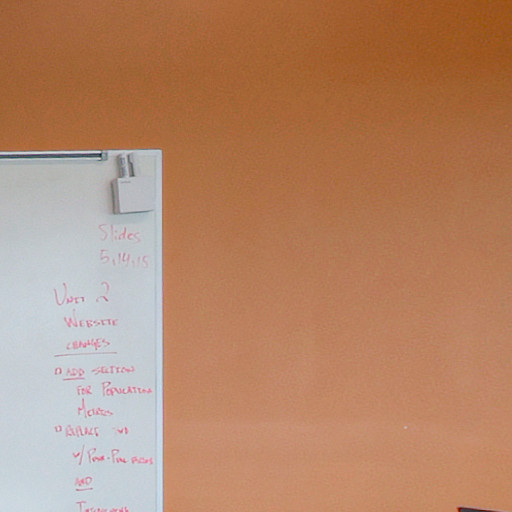 Slides
5,14,15
UNIT 2
WEBSITE
CHANGES
ADD SECTION
FOR POPULATION
METRICS
REPLACE
W/
AND